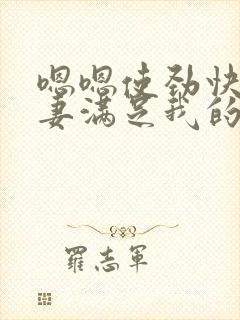 嗯嗯使劲快
妻满足我的
羅志軍